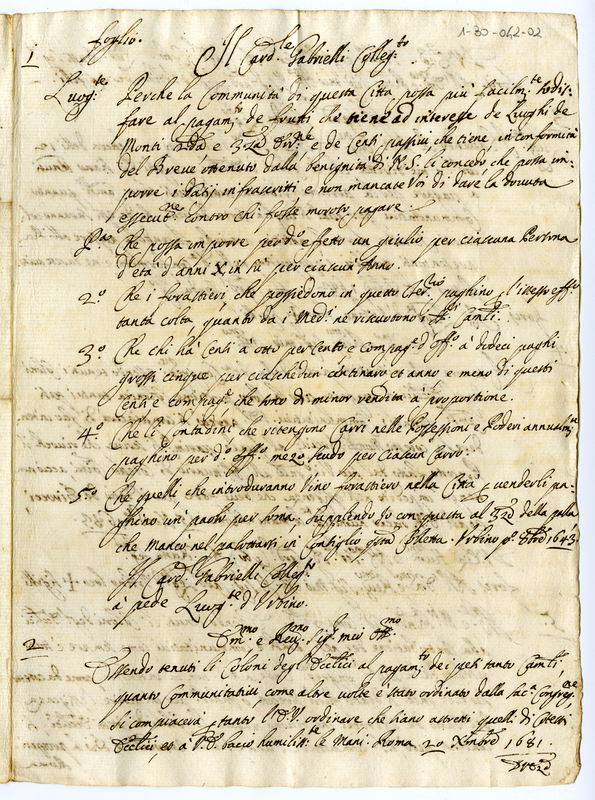 foglio.
1-30-042-02
1
Il Card.le Gabrielli Colleg.to
Luog.te Perche la Communità di questa Città possa più facilm.te sodis-
fare al pagam.to de frutti che tiene ad interesse de Luoghi de
Monti e de Censi passivi che tiene, in conformità
del Breve ottenuto dalla benignità di N.S. li concedo che possa im-
porre i datij infrascritti e non mancate Voi di dare la dovuta
essecut.ne contro chi fosse moroso pagare.
P.mo Che possa imporre per d.o effetto un giulio per ciascuna Persona
d'età d'anni X in sù per ciascun Anno.
2.o Che i forastieri che possiedono in questo Ter.rio paghino l'istesso eff.o
tanta colta, quanto da i Med.i ne riscuotono i
3.o Che chi hà Censi à otto per cento e compag. d'off.o à dideci paghi
grossi cinque per ciaschedun centinaro et anno e meno di questi
Censi e compag. che sono di minor vendita à proportione.
4.o Che li Contadini che ritengono Carri nelle Possessioni e Poderi annualm.te
paghino per d.o eff.o mezo scudo per ciascun Carro.
5.o Che quelli che introduranno Vino forastiero nella Città p venderli pa-
ghino un paolo per soma, supplendo Io con questa al della palla
che mancò nel pallottarsi in Consiglio Urbino p.o 1643.
Il Card. Gabrielli Colleg.to
à piede Luog.te d'Urbino.
2
Em.mo e Rev.mo Sig.r mio
Essendo tenuti li Coloni degl'Eccl.ici al pagam.to dei pesi tanto Cam.li
quanto Communitativi, come altre volte è stato ordinato dalla Sac. Congreg.ne
si compiacerà ptanto V.S. ordinare che siano astretti quelli di cotesti
Eccl.ici, et à V.S. bacio humiliss.te le Mani. Roma 20 Xmbre 1681.